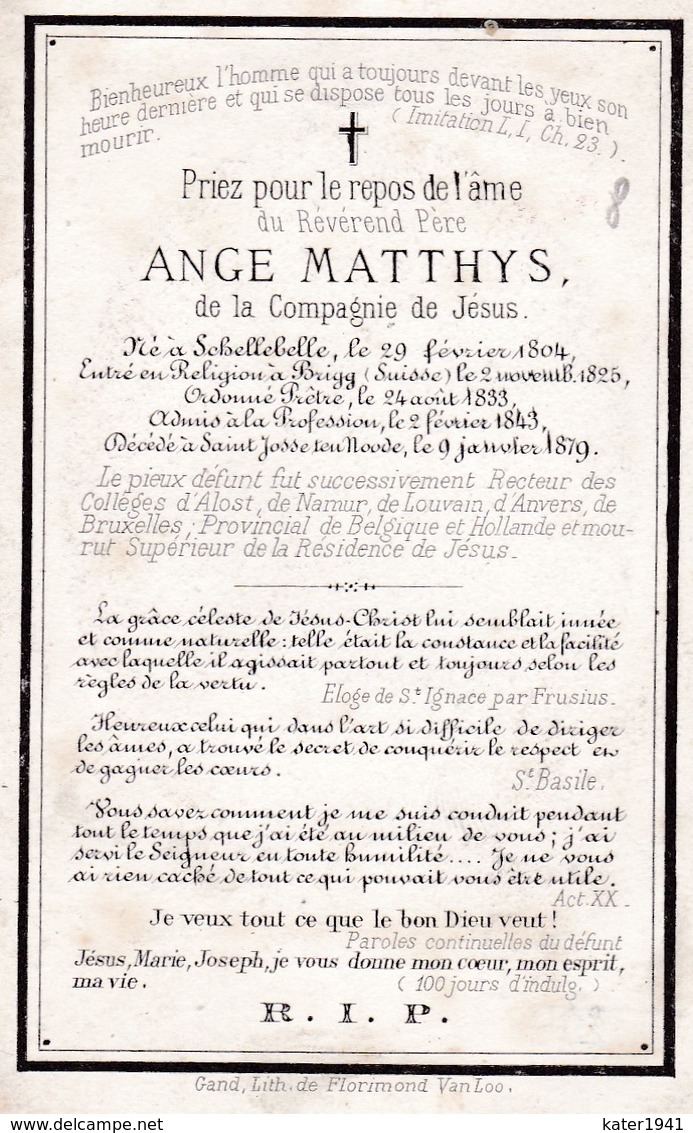 Bienheureux l'homme qui a toujours devant les yeux son
heure dernière et qui se dispose tous les jours à bien
mourir.
(Imitation L, I, Ch. 23.).
Priez pour le repos de l'âme
8
du Révérend Père
ANGE MATTHYS,
de la Compagnie de Jésus.
Né à Schellebelle, le 29 février 1804,
Entré en Religion à Brigg (Suisse) le 2 novemb. 1825,
Ordonné Prêtre, le 24 août 1833,
Admis à la Profession, le 2 février 1843,
Décédé à Saint Josse ten Noode, le 9 janvier 1879.
Le pieux défunt fut successivement Recteur des
Collèges d'Alost, de Namur, de Louvain, d'Anvers, de
Bruxelles; Provincial de Belgique et Hollande et mou-
rut Supérieur de la Résidence de Jésus.
La grâce céleste de Jésus-Christ lui semblait innée
et comme naturelle: telle était la constance et la facilité
avec laquelle il agissait partout et toujours selon les
règles de la vertu.
Eloge de St. Ignace par Frusius.
Heureux celui qui dans l'art si difficile de diriger
les âmes, a trouvé le secret de conquérir le respect et
de gagner les cœurs.
St. Basile.
Vous savez comment je me suis conduit pendant
tout le temps que j'ai été au milieu de vous; j'ai
servi le Seigneur en toute humilité.... Je ne vous
ai rien caché de tout ce qui pouvait vous être utile.
Act. XX.
Je veux tout ce que le bon Dieu veut!
Paroles continuelles du défunt
Jésus, Marie, Joseph, je vous donne mon cœur, mon esprit,
ma vie.
(100 jours d'indulg.)
R. I. P.
Gand, Lith. de Florimond Van Loo.
kater1941